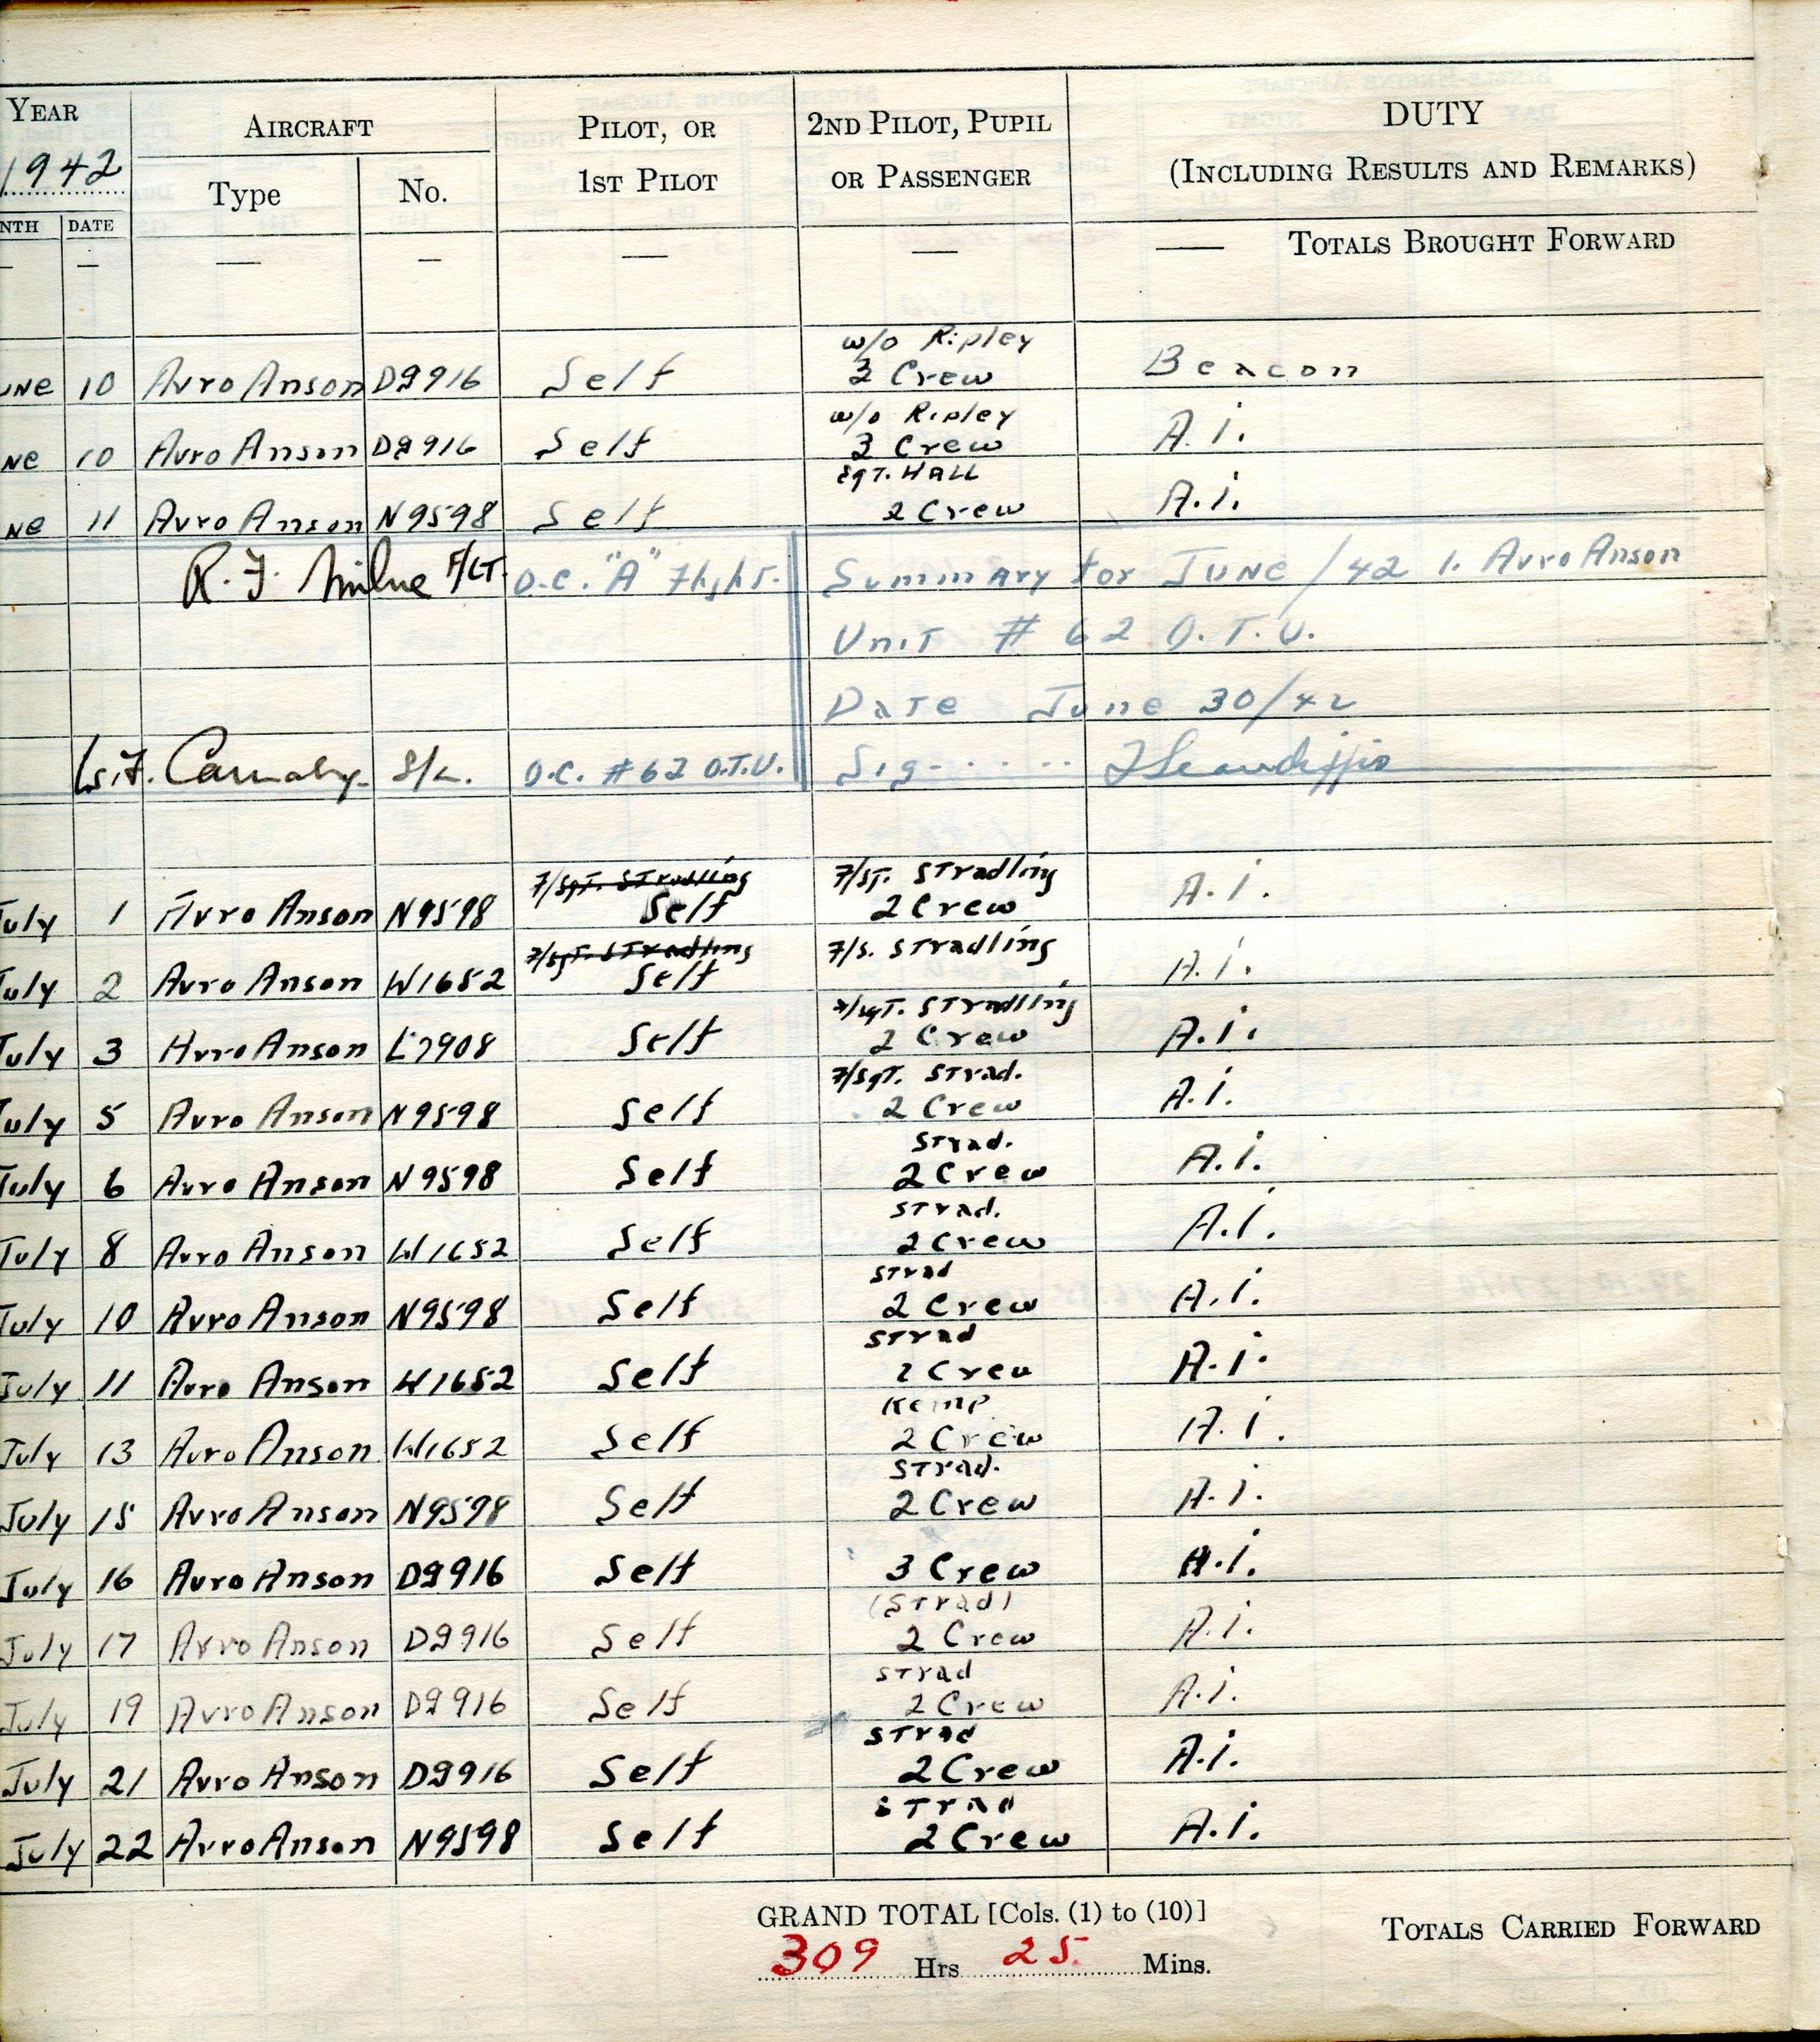 YEAR AIRCRAFT PILOT, OR 2ND PILOT, PUPIL DUTY
1942 Type No. 1ST PILOT OR PASSENGER (INCLUDING RESULTS AND REMARKS)
NTH DATE
— — — — — — — TOTALS BROUGHT FORWARD
w/o Ripley
une 10 Avro Anson DG916 Self 3 Crew Beacon
w/o Ripley
ne 10 Avro Anson DG916 Self 3 Crew A.I.
Sgt. HALL
ne 11 Avro Anson N9598 Self 2 Crew A.I.
R. F. Milne F/LT. O.C. "A" Flight. Summary for June/42 1. Avro Anson
Unit # 62 O.T.U.
Date June 30/42
Carnaby S/L. O.C. #62 O.T.U. Sig.....
F/Sgt. Stradling F/ST. Stradling
July 1 Avro Anson N9598 Self 2 Crew A.I.
F/Sgt. Stradling F/S. Stradling
July 2 Avro Anson W1652 Self A.I.
F/Sgt. Stradling
July 3 Avro Anson L7908 Self 2 Crew A.I.
F/Sgt. Strad.
July 5 Avro Anson N9598 Self 2 Crew A.I.
Strad.
July 6 Avro Anson N9598 Self 2 Crew A.I.
Strad.
July 8 Avro Anson W1652 Self 2 Crew A.I.
Strad
July 10 Avro Anson N9598 Self 2 Crew A.I.
Strad
July 11 Avro Anson W1652 Self 2 Crew A.I.
Kemp
July 13 Avro Anson W1652 Self 2 Crew A.I.
Strad.
July 15 Avro Anson N9598 Self 2 Crew A.I.
July 16 Avro Anson DG916 Self 3 Crew A.I.
(Strad)
July 17 Avro Anson DG916 Self 2 Crew A.I.
Strad
July 19 Avro Anson DG916 Self 2 Crew A.I.
Strad
July 21 Avro Anson DG916 Self 2 Crew A.I.
Strad
July 22 Avro Anson N9598 Self 2 Crew A.I.
GRAND TOTAL [Cols. (1) to (10)] TOTALS CARRIED FORWARD
309 Hrs 25 Mins.